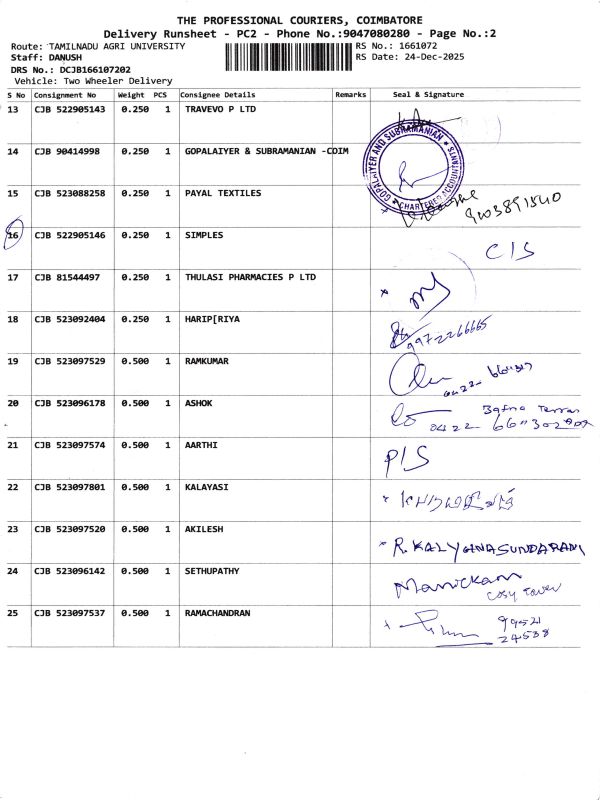 THE PROFESSIONAL COURIERS, COIMBATORE
Delivery Runsheet - PC2 - Phone No.:9047080280 - Page No.:2
Route: TAMILNADU AGRI UNIVERSITY RS No.: 1661072
Staff: DANUSH RS Date: 24-Dec-2025
DRS No.: DCJB166107202
Vehicle: Two Wheeler Delivery
S No Consignment No Weight PCS Consignee Details Remarks Seal & Signature
13 CJB 522905143 0.250 1 TRAVEVO P LTD
14 CJB 90414998 0.250 1 GOPALAIYER & SUBRAMANIAN -COIM
GOPALAIYER AND SUBRAMANIAN
CHARTERED ACCOUNTANTS
15 CJB 523088258 0.250 1 PAYAL TEXTILES
16 CJB 522905146 0.250 1 SIMPLES C/S
17 CJB 81544497 0.250 1 THULASI PHARMACIES P LTD
18 CJB 523092404 0.250 1 HARIP[RIYA 9972266665
19 CJB 523097529 0.500 1 RAMKUMAR 0422-
20 CJB 523096178 0.500 1 ASHOK 0422
21 CJB 523097574 0.500 1 AARTHI P/S
22 CJB 523097801 0.500 1 KALAYASI
23 CJB 523097520 0.500 1 AKILESH R. KALYANASUNDARAM
24 CJB 523096142 0.500 1 SETHUPATHY Manickam
cosy tower
25 CJB 523097537 0.500 1 RAMACHANDRAN 99521
24538